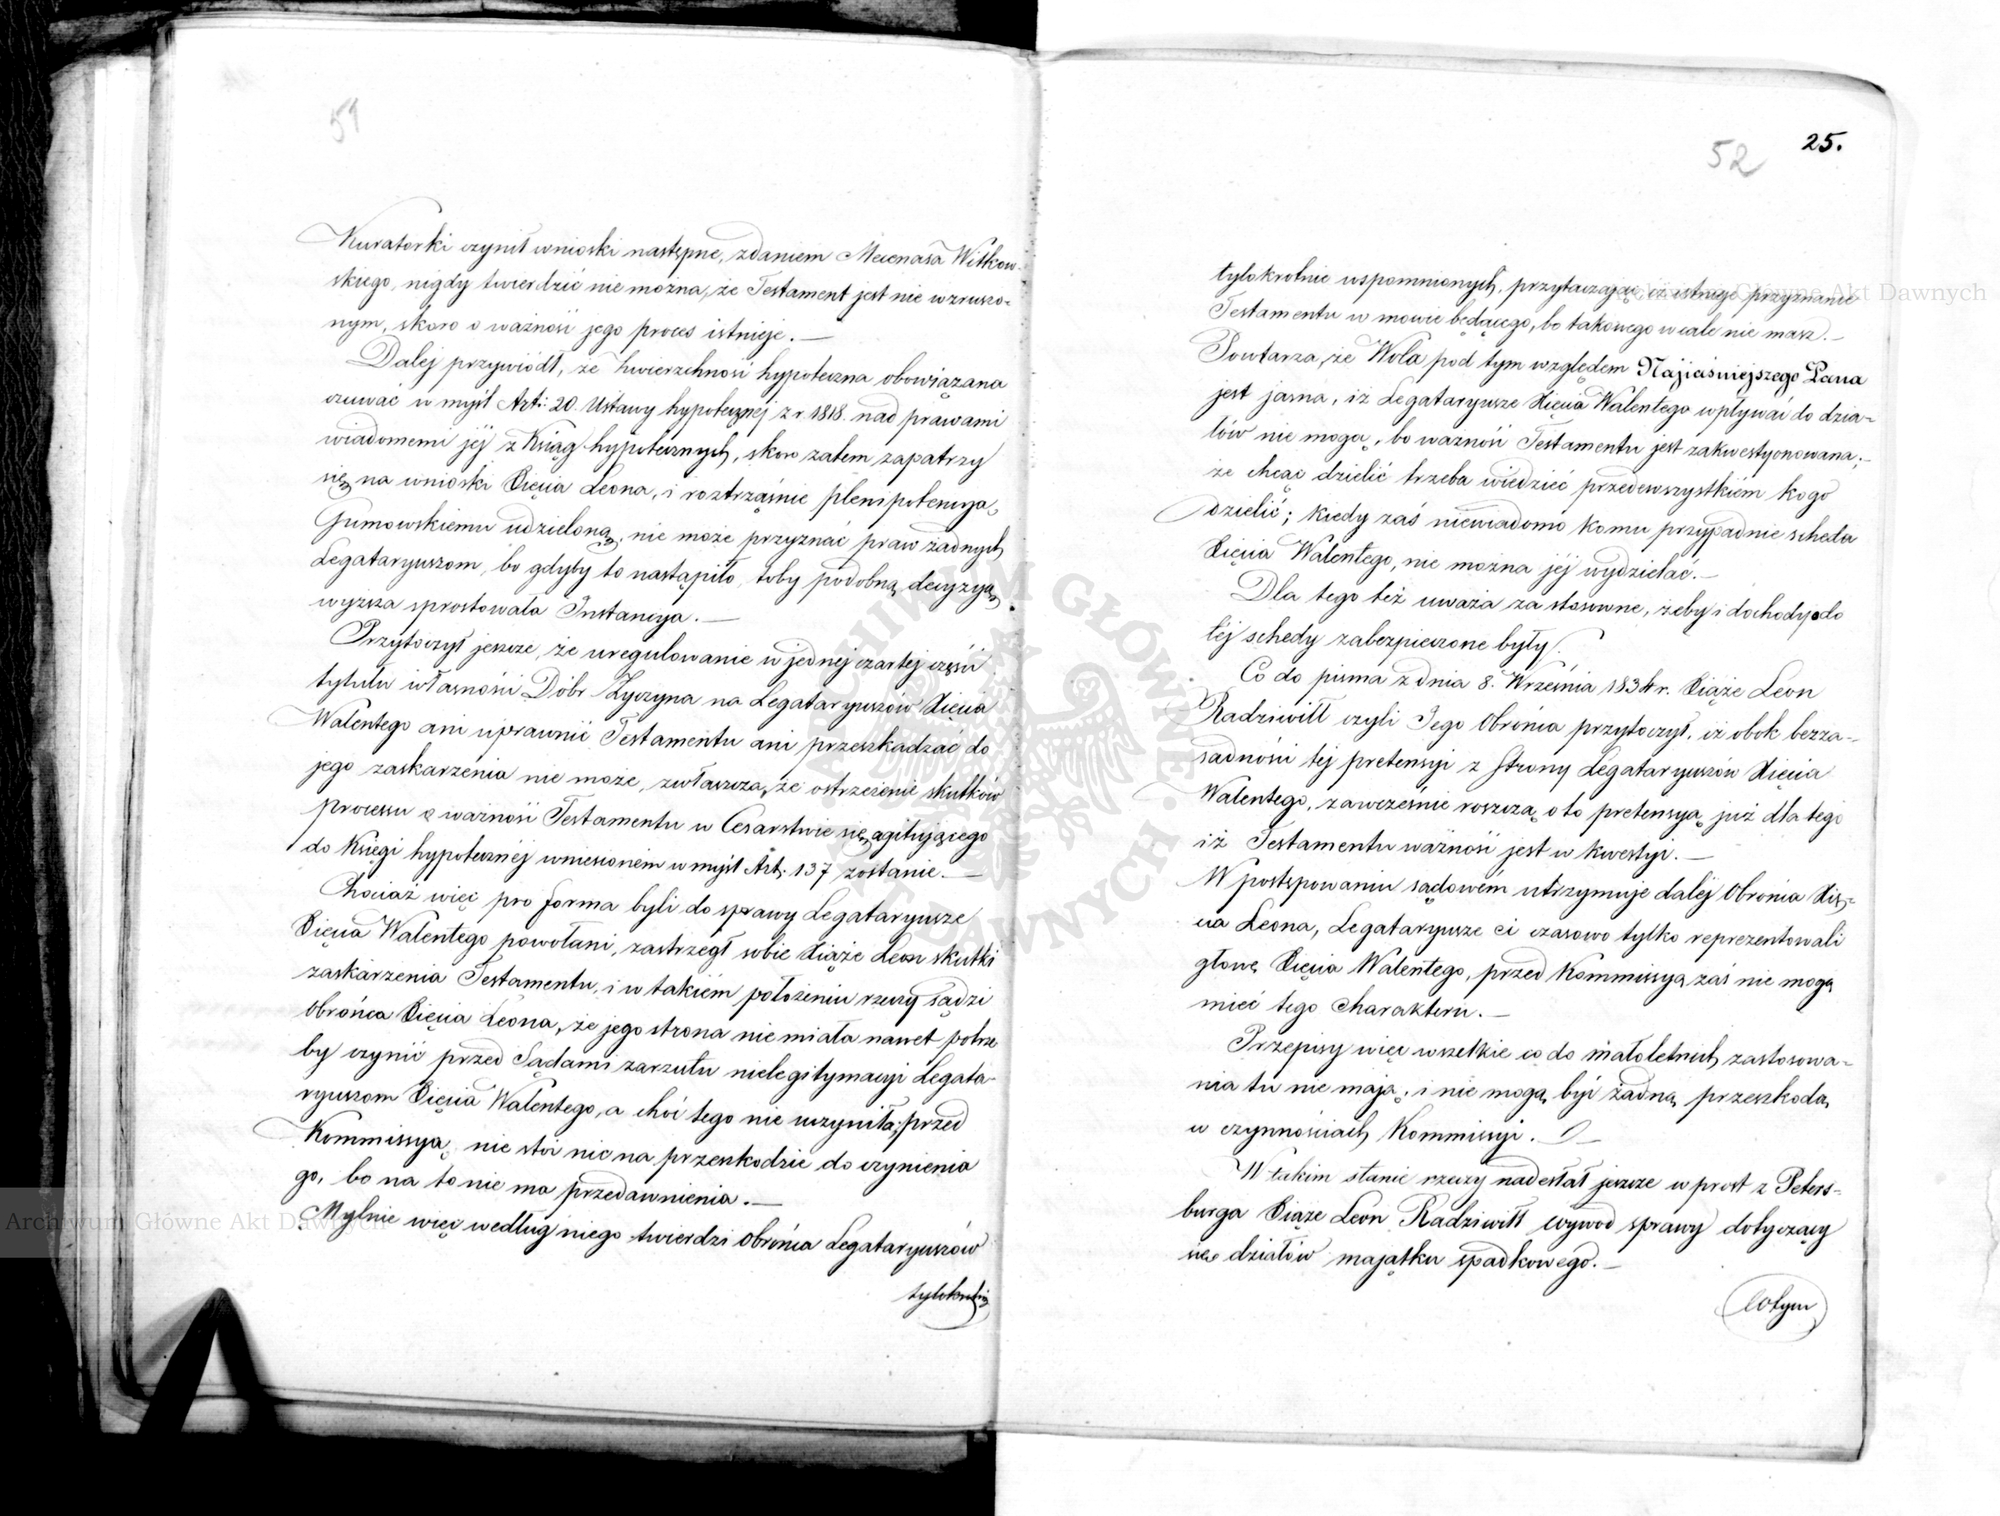 51
Kuratorki czynił wnioski następne, zdaniem Mecenasa Witkow-
skiego, nigdy twierdzić nie można, że Testament jest nie wzruszo-
nym, skoro o ważność jego proces istnieje. —
Dalej przywiódł, że zwierzchność hypoteczna obowiązana
czuwać w myśl Art: 20. Ustawy hypotecznéj z r. 1818. nad prawami
wiadomemi jéj z Ksiąg hypotecznych, skoro zatem zapatrzy
się na wnioski Xięcia Leona, i roztrząśnie plenipotencyą
Gumowskiemu udzieloną, nie może przyznać praw żadnych
Legataryuszom, bo gdyby to nastąpiło, toby podobną decyzyą
wyższa sprostowała Instancya. —
Przytoczył jeszcze, że uregulowanie w jednéj czartéj części
tytułu własności Dóbr Życzyna na Legataryuszów Xięcia
Walentego ani uprawnić Testamentu ani przeszkadzać do
jego zaskarżenia nie może, zwłaszcza, że ostrzeżenie skutków
processu o ważność Testamentu w Cesarstwie się agitującego
do Księgi hypotecznéj wniesionem w myśl Art. 137 zostanie. —
Chociaż więc pro forma byli do sprawy Legataryusze
Xięcia Walentego powołani, zastrzegł sobie Xiąże Leon skutki
zaskarżenia Testamentu, i w takiém położeniu rzeczy sądzi
Obrońca Xięcia Leona, że jego strona nie miała nawet potrze
by czynić przed Sądami zarzutu nielegitymacyi Legata-
ryuszom Xięcia Walentego, a choć tego nie uczyniła, przed
Kommissyą, nie stoi nic na przeszkodzie do czynienia
go, bo na to nie ma przedawnienia. —
Mylnie więc według niego twierdzi Obrońca Legataryuszów
tylokrotnie
52 25.
tylokrotnie wspomnionych, przytaczając iż istnieje przyznanie
Testamentu w mowie będącego, bo takowego wcale nie masz. —
Powtarza, że Wola pod tym względem Najjaśniejszego Pana
jest jasna, iż Legataryusze Xięcia Walentego wpływać do dzia-
łów nie mogą, bo ważność Testamentu jest zakwestyonowana; —
że chcąc dzielić trzeba wiedzieć przedewszystkiém kogo
dzielić; kiedy zaś niewiadomo komu przypadnie scheda
Xięcia Walentego, nie można jéj wydzielać. —
Dla tego też uważa za stosowne, żeby i dochody do
téj schedy zabezpieczone były.
Co do pisma z dnia 8. Września 1834 r. Xiąże Leon
Radziwiłł czyli Jego Obrońca przytoczył, iż obok bezza-
sadności téj pretensyi z strony Legataryuszów Xięcia
Walentego, zawcześnie roszczą oto pretensyą, już dla tego
iż Testamentu ważność jest w kwestyi. —
W postępowaniu sądowém utrzymuje daléj Obrońca Xię-
cia Leona, Legataryusze ci czasowo tylko reprezentowali
głowę Xięcia Walentego, przed Kommissyą zaś nie mogą
mieć tego charakteru. —
Przepisy więc wszelkie co do małoletnich zastosowa-
nia tu nie mają, i nie mogą być żadną przeszkodą
w czynnościach Kommissyi. —
W takim stanie rzeczy nadesłał jeszcze wprost z Peters-
burga Xiąże Leon Radziwiłł wywód sprawy dotyczący
się działów majątku spadkowego. —
wtym
Archiwum Główne Akt Dawnych
Archiwum Główne Akt Dawnych
ARCHIWUM GŁÓWNE AKT DAWNYCH